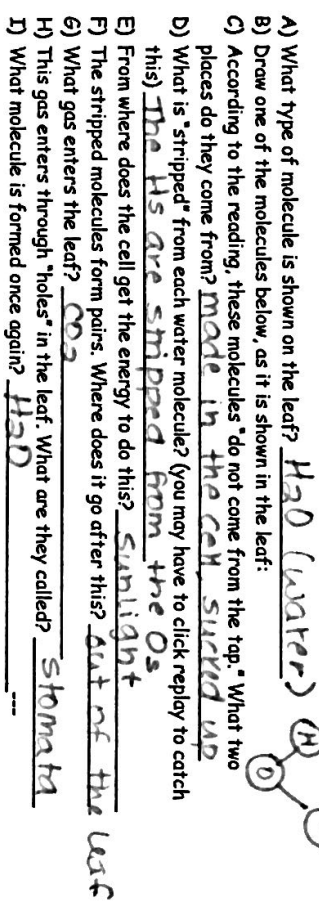 A) What type of molecule is shown on the leaf? H2O (water)
B) Draw one of the molecules below, as it is shown in the leaf:
H
O
C) According to the reading, these molecules "do not come from the tap." What two
places do they come from? made in the cell sucked up
D) What is "stripped" from each water molecule? (you may have to click replay to catch
this) The Hs are stripped from the Os
E) From where does the cell get the energy to do this? sunlight
F) The stripped molecules form pairs. Where does it go after this? out of the leaf
G) What gas enters the leaf? CO2
H) This gas enters through "holes" in the leaf. What are they called? stomata
I) What molecule is formed once again? H2O